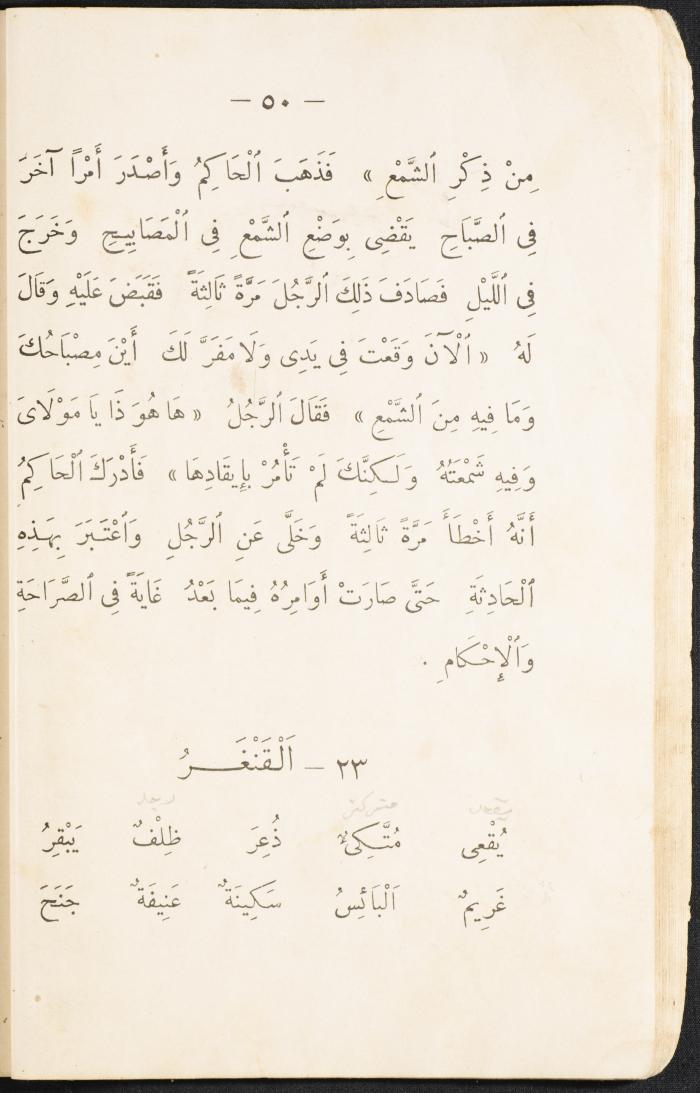 — ٥٠ —
مِنْ ذِكْرِ ٱلشَّمْعِ » فَذَهَبَ ٱلْحَاكِمُ وَأَصْدَرَ أَمْرًا آخَرَ
فِى ٱلصَّبَاحِ يَقْضِى بِوَضْعِ ٱلشَّمْعِ فِى ٱلْمَصَابِيحِ وَخَرَجَ
فِى ٱللَّيْلِ فَصَادَفَ ذَلِكَ ٱلرَّجُلَ مَرَّةً ثَالِثَةً فَقَبَضَ عَلَيْهِ وَقَالَ
لَهُ « ٱلْآنَ وَقَعْتَ فِى يَدِى وَلَا مَفَرَّ لَكَ أَيْنَ مِصْبَاحُكَ
وَمَا فِيهِ مِنَ ٱلشَّمْعِ » فَقَالَ ٱلرَّجُلُ « هَا هُوَ ذَا يَا مَوْلَاىَ
وَفِيهِ شَمْعَتُهُ وَلَكِنَّكَ لَمْ تَأْمُرْ بِإِيقَادِهَا » فَأَدْرَكَ ٱلْحَاكِمُ
أَنَّهُ أَخْطَأَ مَرَّةً ثَالِثَةً وَخَلَّى عَنِ ٱلرَّجُلِ وَٱعْتَبَرَ بِهَذِهِ
ٱلْحَادِثَةِ حَتَّى صَارَتْ أَوَامِرُهُ فِيمَا بَعْدُ غَايَةً فِى ٱلصَّرَاحَةِ
وَٱلْإِحْكَامِ .
٢٣ — اَلْقَنْغَرُ
يُقْعِى مُتَّكِئٌ ذُعِرَ ظِلْفٌ يَبْقِرُ
غَرِيمٌ اَلْبَائِسُ سَكِينَةٌ عَنِيفَةٌ جَنَحَ